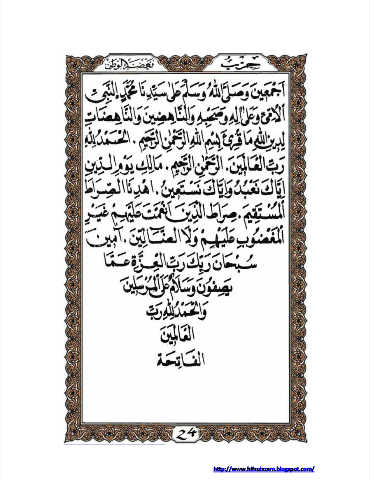 حزب
نهضة الوطن
اَجْمَعِيْنَ وَصَلَّى اللهُ وَسَلَّمَ عَلَى سَيِّدِنَا مُحَمَّدٍ النَّبِيِّ
الْاُمِّيِّ وَعَلَى اٰلِهِ وَصَحْبِهِ وَالنَّاهِضِيْنَ وَالنَّاهِضَاتِ
لِدِيْنِ اللهِ مَا قُرِئَ بِسْمِ اللهِ الرَّحْمٰنِ الرَّحِيْمِ . الْحَمْدُ لِلهِ
رَبِّ الْعَالَمِيْنَ . الرَّحْمٰنِ الرَّحِيْمِ . مَالِكِ يَوْمِ الدِّيْنِ
اِيَّاكَ نَعْبُدُ وَاِيَّاكَ نَسْتَعِيْنُ . اِهْدِنَا الصِّرَاطَ
الْمُسْتَقِيْمَ . صِرَاطَ الَّذِيْنَ اَنْعَمْتَ عَلَيْهِمْ غَيْرِ
الْمَغْضُوْبِ عَلَيْهِمْ وَلَا الضَّالِّيْنَ . اٰمِيْنَ
سُبْحَانَ رَبِّكَ رَبِّ الْعِزَّةِ عَمَّا
يَصِفُوْنَ وَسَلَامٌ عَلَى الْمُرْسَلِيْنَ
وَالْحَمْدُ لِلهِ رَبِّ
الْعَالَمِيْنَ
الْفَاتِحَة
24
http://www.hitsuixarn.blogspot.com/